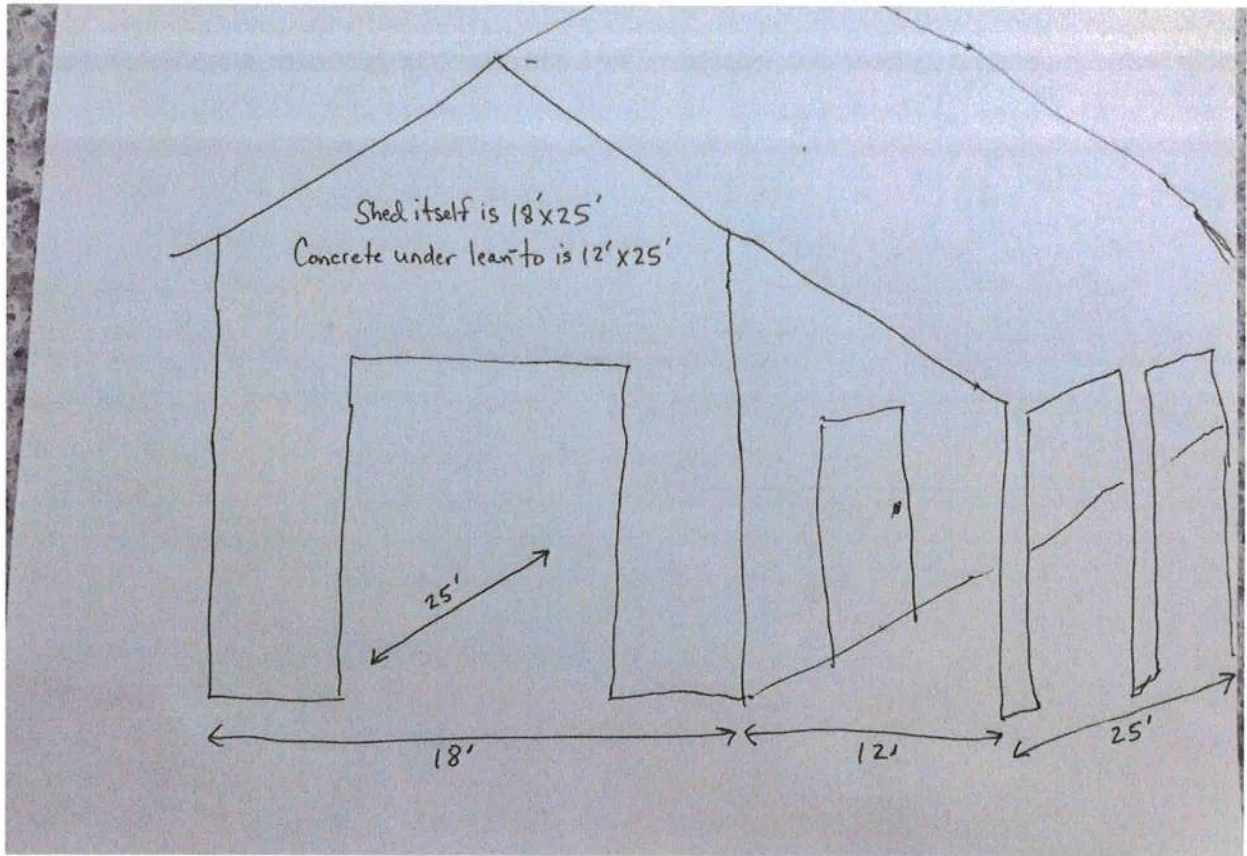 Shed itself is 18'x25'
Concrete under lean-to is 12'x25'
25'
18'
12'
25'